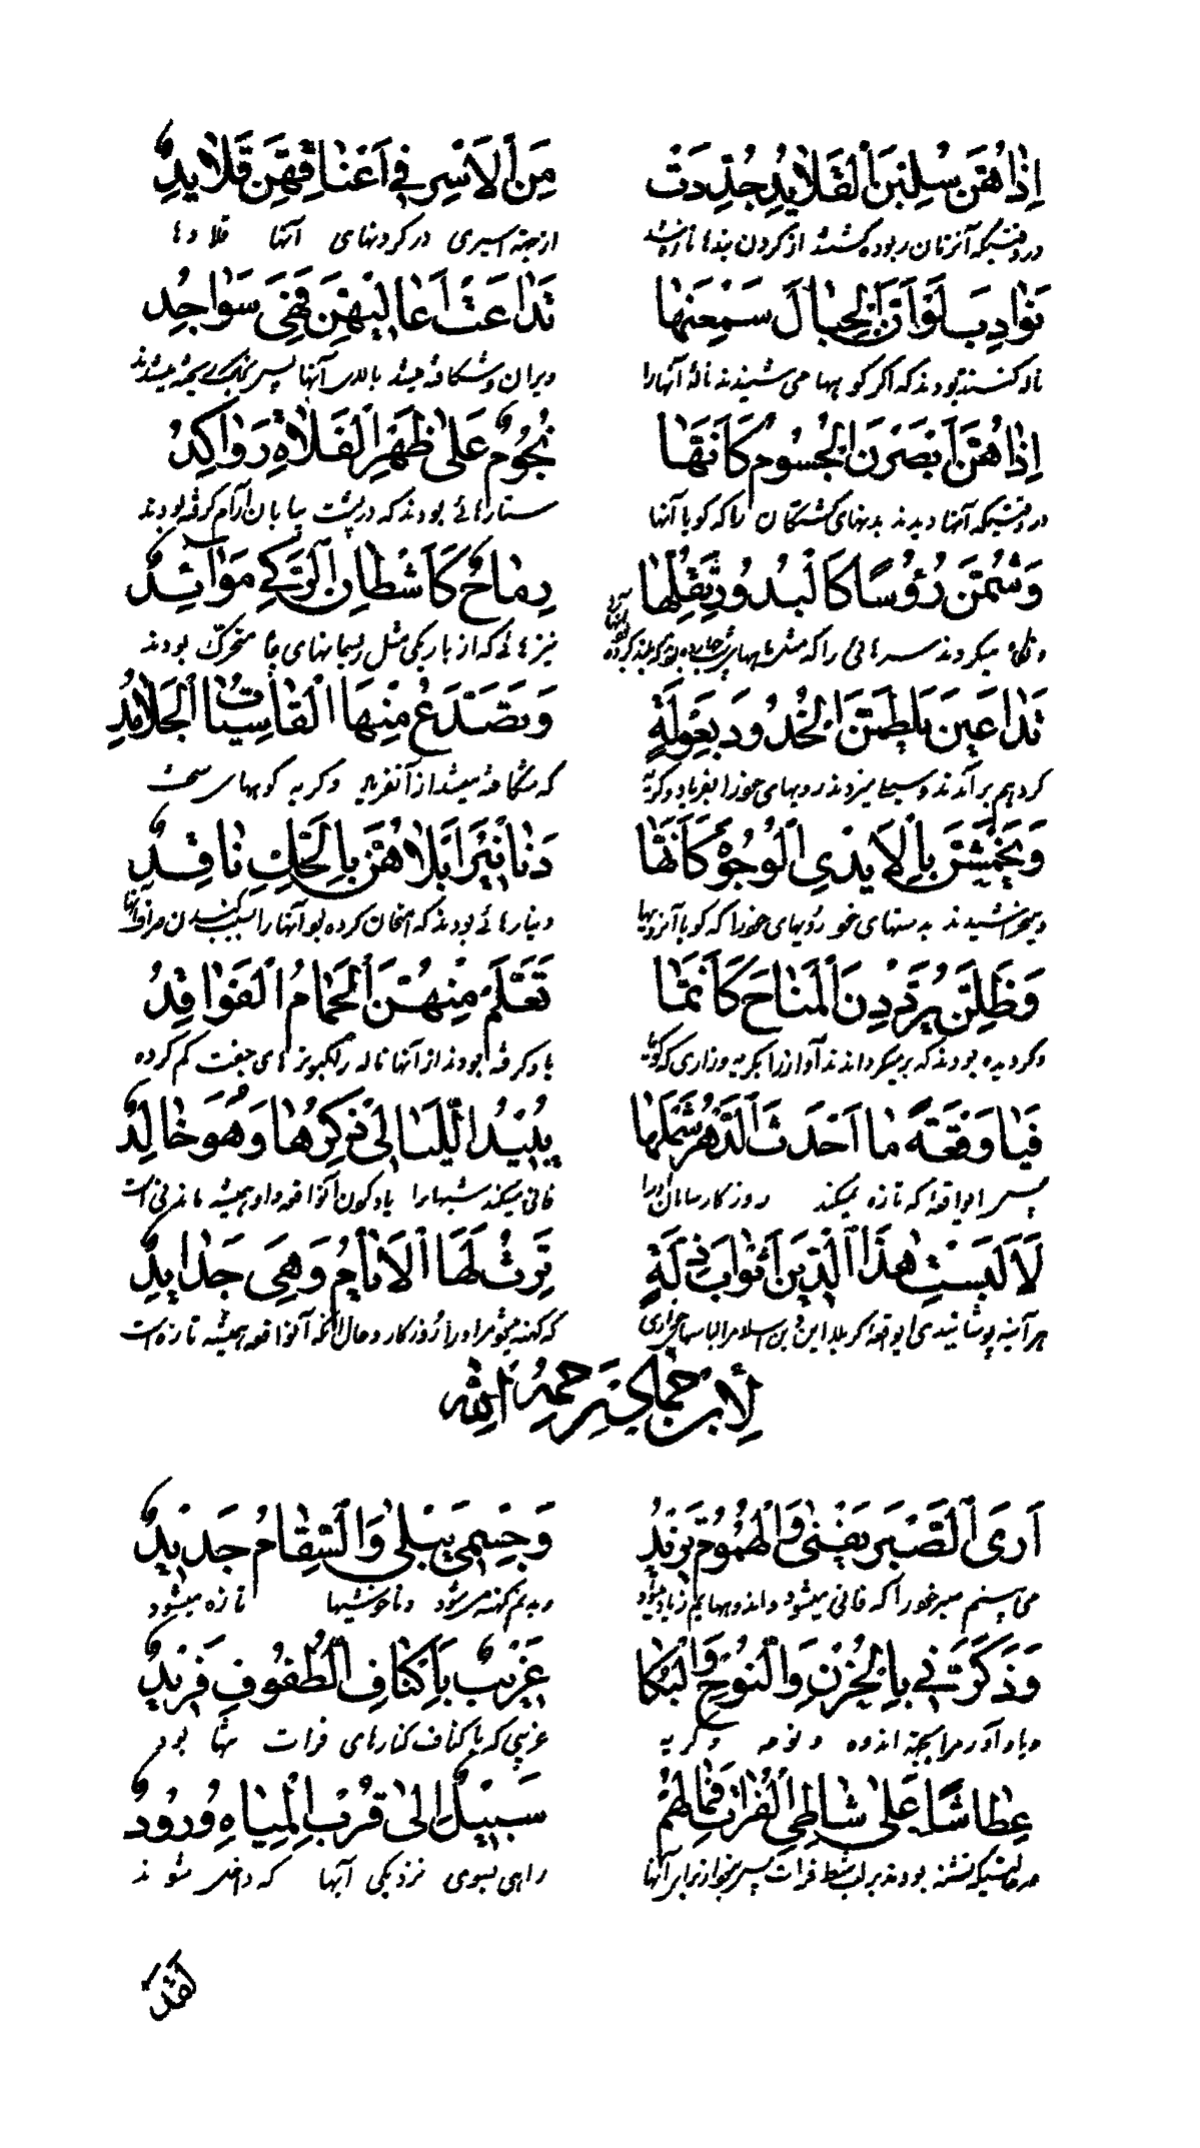 اِذٰا هُنَّ سُلِبْنَ اَلْقَلَايِدِ جُدِّدَتْ مِنَ اَلْاَسْرِ فِی اَعْنٰاقِهِنَّ قَلَایِدُ
در وقتیکه آنزنان ربوده گشتند از گردن بندها تازه شد از جهة اسیری در گردنهای آنها قلادها
نَوٰادِبَ لَوْ اَنَّ الْجِبٰالَ سَمِعْنَهٰا تَدٰاعَتْ اَعٰالِیْهِنَّ فَهْیَ سَوٰاجِدُ
ناله کننده بودند که اگر کوهها می شنیدند نالهٔ آنها را ویران و شکافته میشد بالای آنها پس
اِذٰا هُنَّ اَبْصَرْنَ الْجُسُومَ کَاَنَّهٰا نُجُوْمٌ عَلٰی ظَهْرِ الْفَلٰاةِ رَوٰاکِدُ
در وقتیکه آنها دیدند بدنهای کشتگان را که گویا آنها ستارهائی بودند که در پشت بیابان آرام گرفته بودند
وَشُمْنَ رُؤُسًا کَالْبُدُوْرِ تُقِلُّهٰا رِمٰاحٌ کَاَشْطٰانِ الرَّکِیِّ مَوٰائِدُ
و نگاه میکردند سرهائی را که مثل نیزهائی که از باریکی مثل ریسمانهای چاه متحرّک بودند
تَدٰاعَیْنَ یَلْطِمْنَ الْخُدُودَ بِعَوْلَةٍ وَتَصْدَعُ مِنْهَا الْقٰاسِیٰاتُ الْجَلَامِدُ
گرد هم برآمدند و سیلی میزدند رویهای خود را بفریاد و گریه که شکافته میشد از آنفریاد و گریه کوههای سخت
وَیَخْمِشْنَ بِالْاَیْدِی الْوُجُوْهَ کَاَنَّهٰا دَنٰانِیْرُ اَبْلَاهُنَّ بِالْحَکِّ نٰاقِدُ
میخراشیدند به دستهای خود رویهای خود را که گویا آنرویها دینارهائی بودند که امتحان کرده بود آنها را
وَظَلْنَ یُرَدِّدْنَ الْمَنٰاحَ کَاَنَّمٰا تَعَلَّمَ مِنْهُنَّ الْحَمٰامُ الْفَوٰاقِدُ
و گردیده بودند که بر میگرداندند آواز را بگریه و زاری که گویا یاد گرفته بودند از آنها ناله را کبوترهای جفت گم کرده
فَیٰا وَقْعَةً مٰا اَحْدَثَ الدَّهْرُ مِثْلَهٰا یُبِیْدُ اللَّیٰالِیْ ذِکْرُهٰا وَهُوَ خٰالِدٌ
پس ای واقعهٔ که تازه نمیکند روزگار فانی میکند شبها را یاد کردن آنواقعه و او همیشه ماندنی است
لَاَلْبَسْتِ هٰذَا الدِّیْنَ اَثْوٰابَ ذِلَّةٍ تَرِثُّ لَهَا الْاَیّٰامُ وَهِیَ جَدٰایِدُ
هر آینه پوشانیدی ایواقعهٔ کربلا این دین اسلام را لباسهای خواری که کهنه میشود مر او را روزگار و حال آنکه آنواقعه همیشه تازه است
لِابْنِ حَمّٰادٍ رَحِمَهُ اللّٰه
اَرَی الصَّبْرَ یَفْنٰی وَالْهُمُوْمَ تَزِیْدُ وَجِسْمِیْ یَبْلٰی وَالسِّقٰامُ جَدِیْدٌ
می بینم صبر خود را که فانی میشود و اندوههایم زیاد میشود و بدنم کهنه میشود و ناخوشیها تازه میشود
وَذَکَّرَنِیْ بِالْحُزْنِ وَالنَّوْحِ وَالْبُکٰا غَرِیْبٌ بِاَکْنٰافِ الطُّفُوفِ فَرِیْدٌ
و یاد آورد مرا بجهة اندوه و نوحه و گریه غریبی که باکناف کنارهای فرات تنها بود
عِطٰاشًا عَلٰی شٰاطِی الْفُرٰاتِ فَمٰا لَهُمْ سَبِیْلٌ اِلٰی قُرْبِ الْمِیٰاهِ وُرُوْدٌ
در حالتیکه تشنه بودند بر لب شط فرات پس نبود از برای آنها راهی بسوی نزدیکی آبها که داخل شوند
لَقَدْ